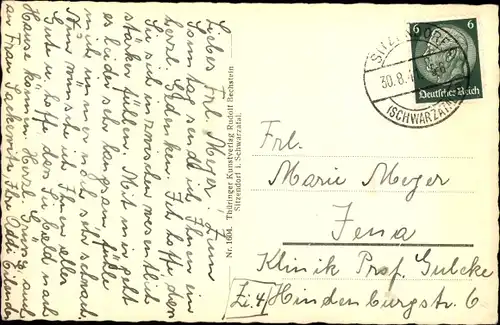 Liebes Frl. Meyer! Zum
Sonntag sende ich Ihnen ein
herzl. Gedenken. Ich hoffe dass
Sie sich inzwischen wesentlich
stärker fühlen. Mit mir geht
es leider sehr langsam, fühle
mich immer noch sehr schwach.
Nun wünsche ich Ihnen alles
Gute u. hoffe dass Sie bald nach
Hause können. Herzl. Grüsse auch
an Frau Ihre
Nr. 1604. Thüringer Kunstverlag Rudolf Bechstein
Sitzendorf i. Schwarzatal.
6 6
Deutsches Reich
SITZENDORF
30.8.
(SCHWARZATAL)
Frl.
Marie Meyer
Jena
Klinik Prof. Gulcke
Zi. 4 Hindenburgstr. 6